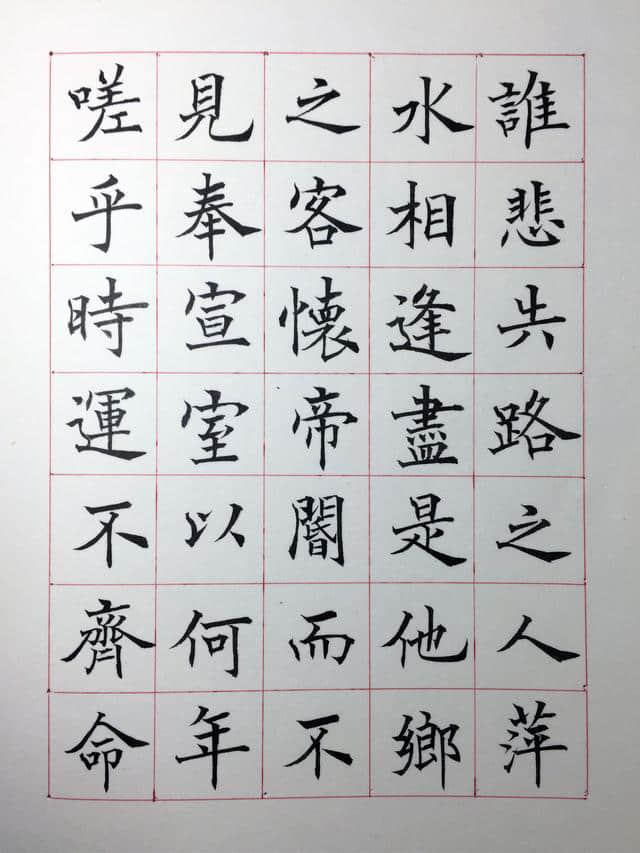 誰悲失路之人萍
水相逢盡是他鄉
之客懷帝閽而不
見奉宣室以何年
嗟乎時運不齊命